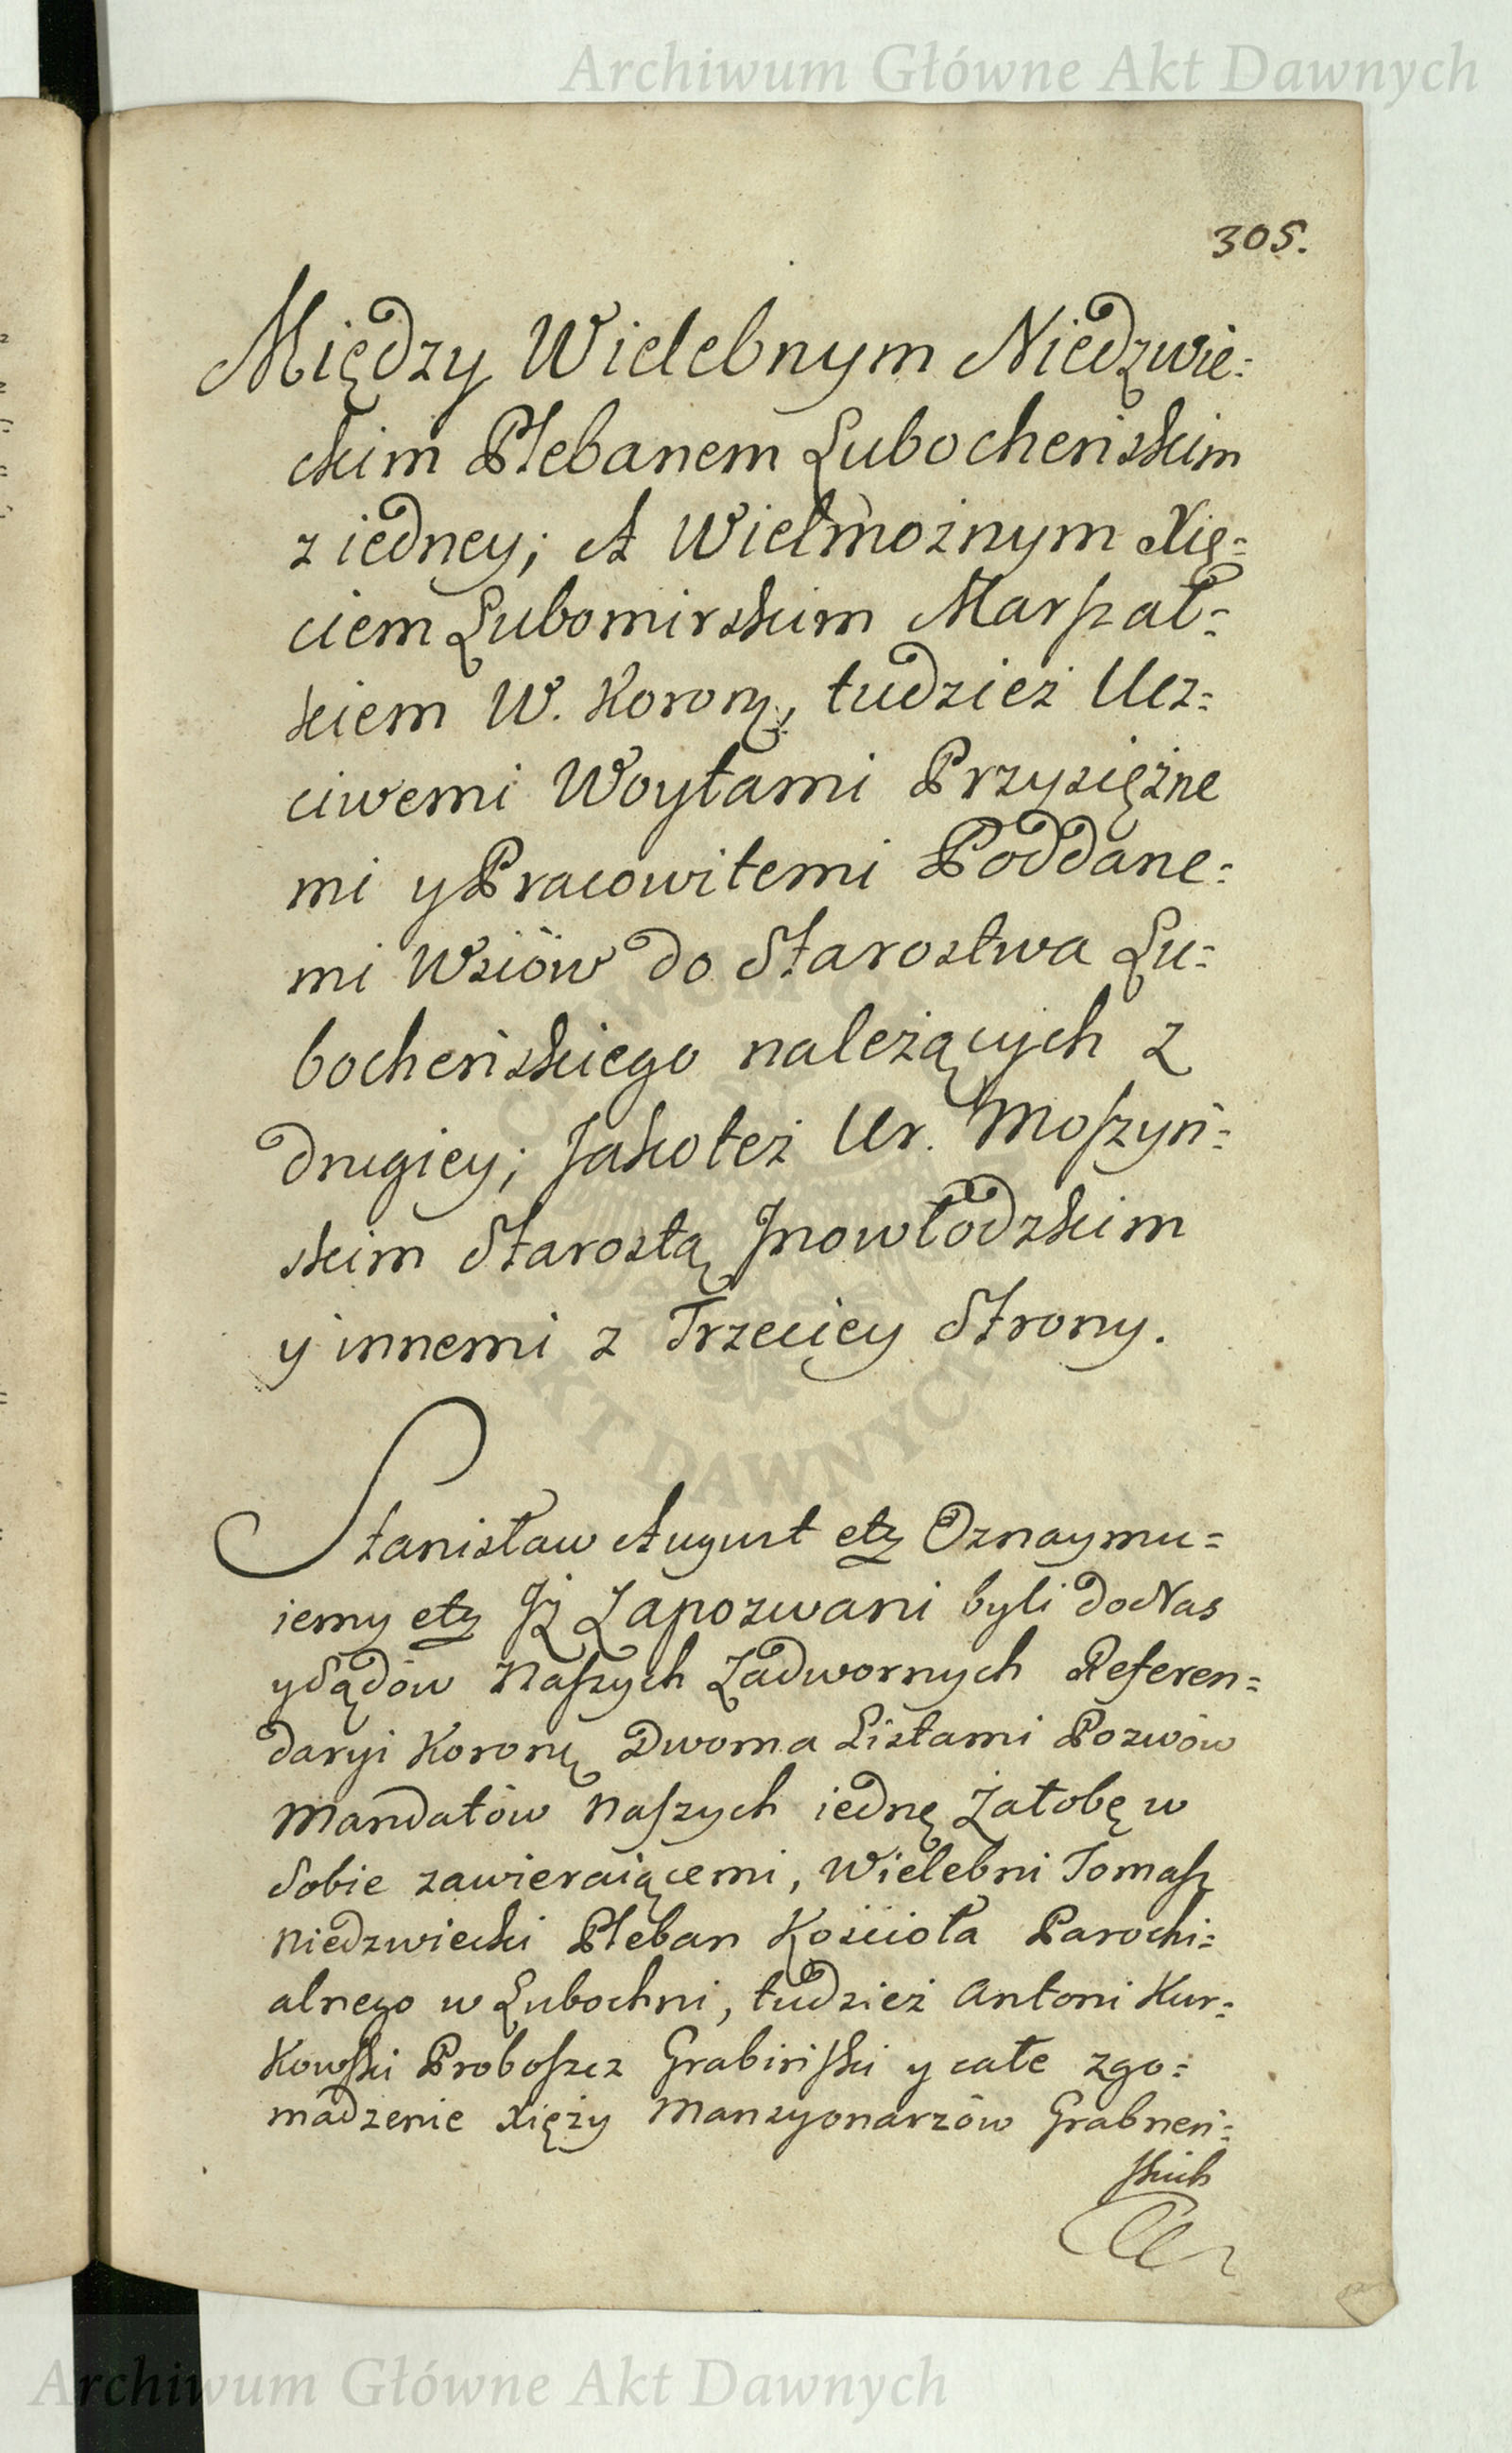 Archiwum Główne Akt Dawnych
305.
Między Wielebnym Niedzwie:
ckim Plebanem Lubocheńskim
z iedney; A Wielmożnym Xię:
ciem Lubomirskim Marszał:
kiem W. Koronę, tudzież Ucz:
ciwemi Woytami Przysiężne
mi y Pracowitemi Poddane:
mi Wsiów do Starostwa Lu:
bocheńskiego należących z
drugiey; Jakoteż Ur. Moszyń:
skim Starostą Jnowłodzkim
y innemi z Trzeciey Strony.
Stanisław August etz Oznaymu:
iemy etz Jż Zapozwani byli do Nas
y Sądów Naszych Zadwornych Referen:
daryi Koronę Dwoma Listami Pozwów
Mandatów Naszych iednę Żałobę w
Sobie zawieraiącemi, Wielebni Tomasz
Niedzwiecki Pleban Kościoła Parochi:
alnego w Lubochni, tudzież Antoni Kur:
Kowski Proboszcz Grabiński y całe zgo:
madzenie Xięży Mansyonarzów Grabneń:
skich
Archiwum Główne Akt Dawnych